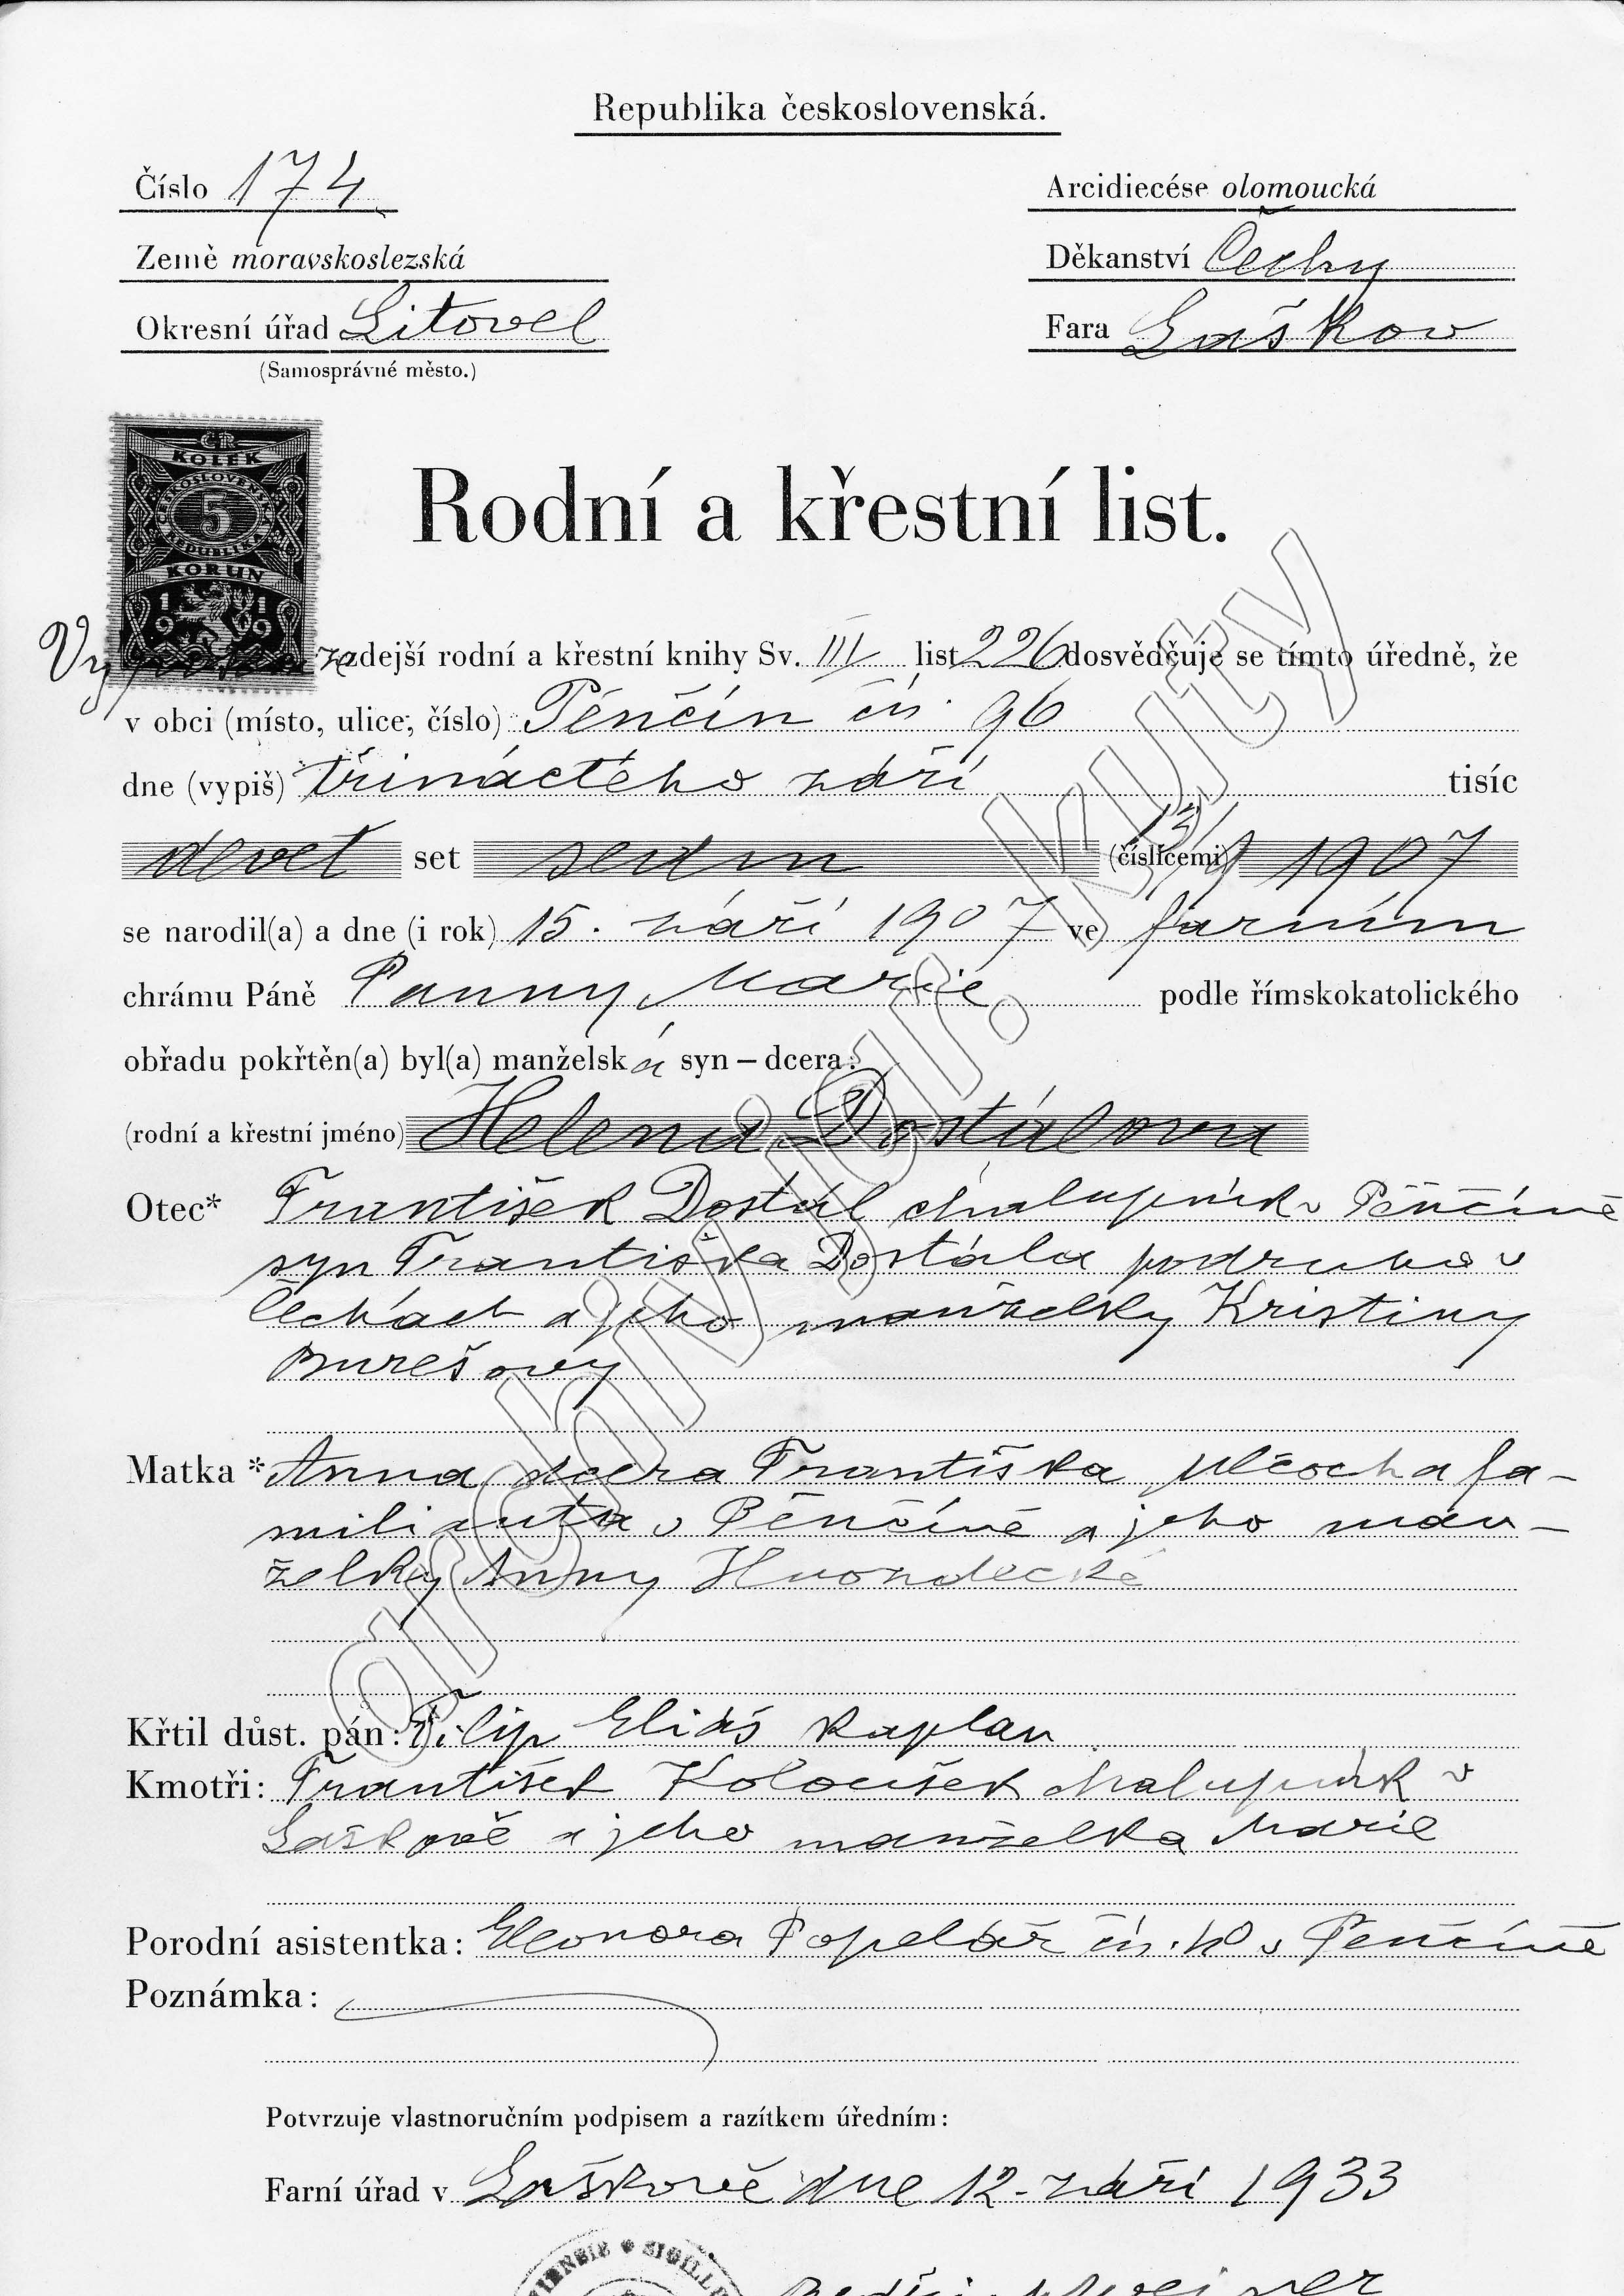 Republika československá.
Číslo 174
Arcidiecése olomoucká
Země moravskoslezská
Děkanství Čechy
Okresní úřad Litovel
Fara Laškov
(Samosprávné město.)
ČR
KOLEK
5
KORUN
1919
Rodní a křestní list.
zdejší rodní a křestní knihy Sv. III list 226 dosvědčuje se tímto úředně, že
v obci (místo, ulice, číslo) Pěnčín čís. 96
dne (vypiš) třináctého září tisíc
devět set sedm (číslicemi) 13/9 1907
se narodil(a) a dne (i rok) 15. září 1907 ve farním
chrámu Páně Panny Marie podle římskokatolického
obřadu pokřtěn(a) byl(a) manželská syn – dcera:
(rodní a křestní jméno) Helena Dostálova
Otec* František Dostál chalupník v Pěnčíně
syn Františka Dostála podruha v
Čechách a jeho manželky Kristiny
Burešovy
Matka* Anna dcera Františka Vlčocha fa-
milianta v Pěnčíně a jeho man-
želky Anny
Křtil důst. pán: Filip Eliáš kaplan
Kmotři: František Koloušek chalupník v
Laškově a jeho manželka Marie
Porodní asistentka: Eleonora Popelář v Pěnčíně
Poznámka:
Potvrzuje vlastnoručním podpisem a razítkem úředním:
Farní úřad v Laškově dne 12. září 1933
archiv jar. kuty